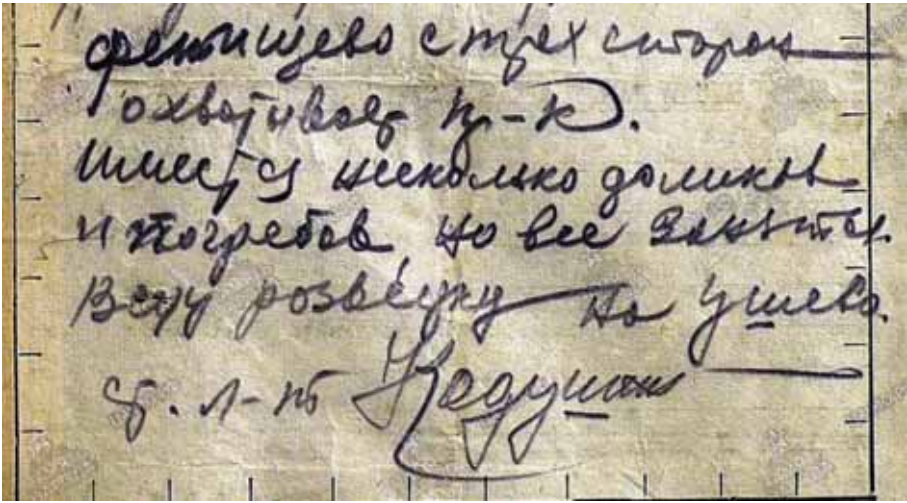 с трех сторон
охватывает пр-к.
Имеется несколько домиков
и погребов но все заняты.
Веду розведку на Ушева.
ст. л-нт